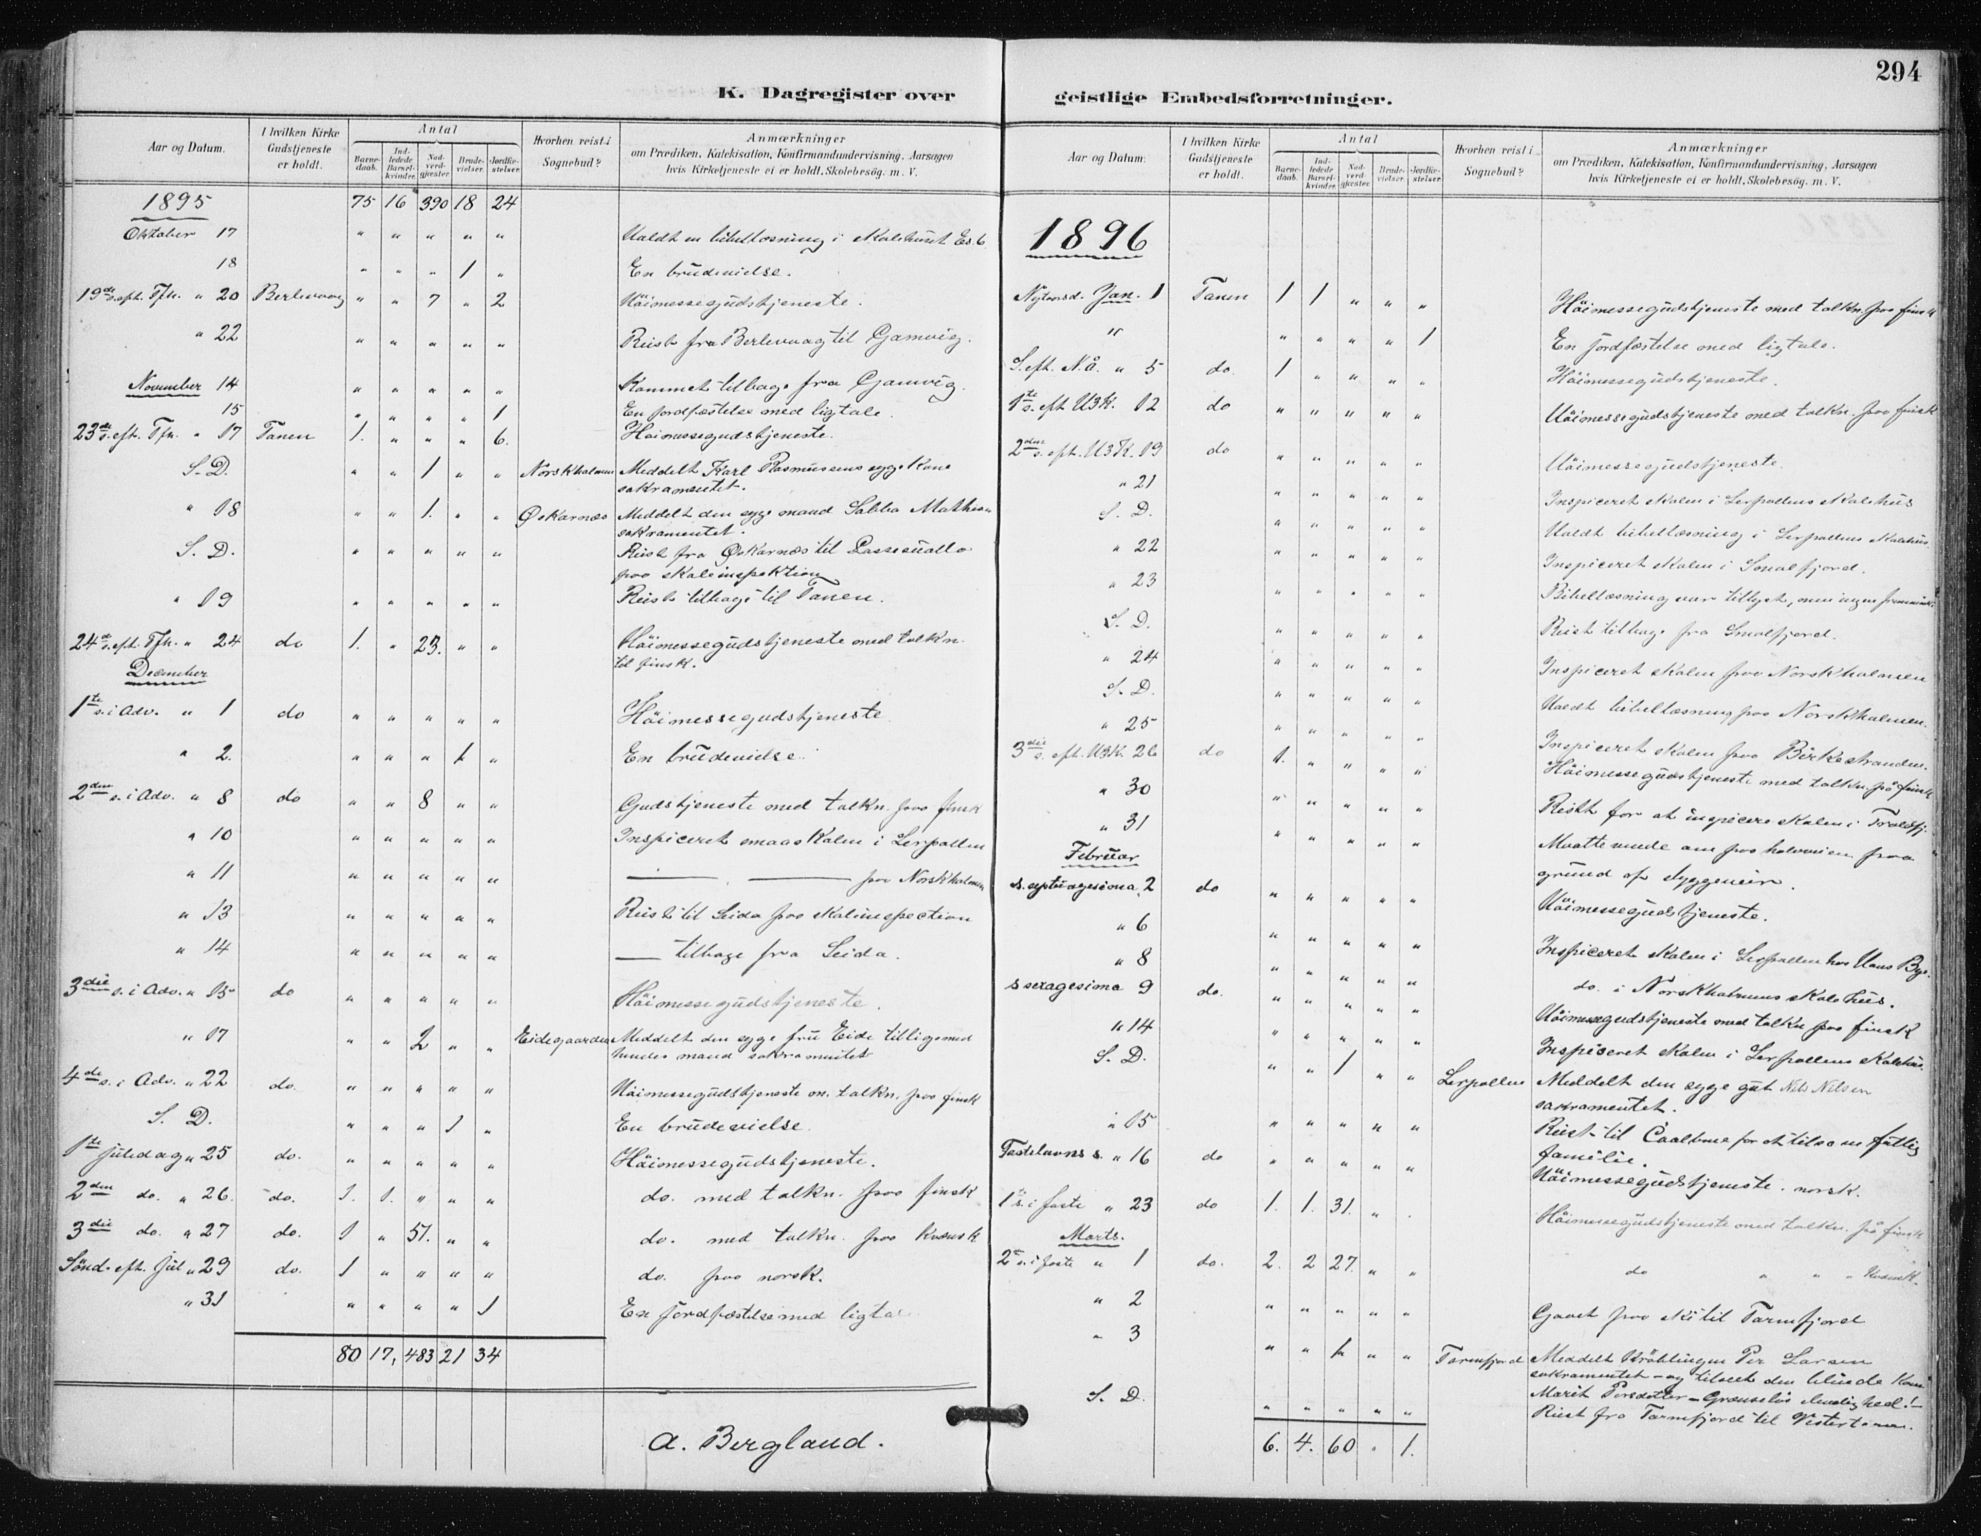 294
K. Dagregister over geistlige Embedsforretninger.
Aar og Datum.
I hvilken Kirke Gudstjeneste er holdt.
Antal
Barnedaab.
Indledede Barselkvinder.
Nadverdgjester.
Brudevielser.
Jordfæstelser.
Hvorhen reist i Sognebud?
Anmærkninger
om Prædiken, Katekisation, Konfirmandundervisning, Aarsagen
hvis Kirketjeneste ei er holdt, Skolebesög. m. V.
1895 75 16 390 18 24
Oktober 17 " " " " " Holdt en bibellæsning i skolehuset Es. 6
18 " " " 1 " En brudevielse.
19de s. eft. Tfh. " 20 Berlevaag " " 7 " 2 Höimessegudstjeneste.
" 22 " " " " " Reist fra Berlevaag til Gamvig.
November 14 " " " " " Kommet tilbage fra Gamvig.
15 " " " " 1 En jordfæstelse med ligtale.
23de s. eft. Tfh. " 17 Tanen 1. " " " 6. Höimessegudstjeneste.
S. D. " " 1 " " Norskholmen Meddelt Karl Rasmussens syge kone
sakramentet.
" 18 " " 1. " " Øskarnæs Meddelt den syge mand Sabba
sakramentet.
S. D. " " " " " Reist fra Øskarnæs til
paa skoleinspektion
" 19 " " " " " Reist tilbage til Tanen.
24de s. eft. Tfh. " 24 do 1. " 23. " " Höimessegudstjeneste med tolkn.
til finsk.
December
1te s. i Adv. " 1 do " " " " " Höimessegudstjeneste
" 2. " " " 1 " En brudevielse.
2den s. i Adv. " 8 do " " 8 " " Gudstjeneste med tolkn. paa finsk
" 10 " " " " " Inspiceret smaaskolen i Lerpollen
" 11 " " " " " — " — paa Norskholmen
" 13 " " " " " Reist til Seida paa skoleinspection
" 14 " " " " " — tilbage fra Seida.
3die s. i Adv. " 15 do " " " " " Höimessegudstjeneste.
" 17 " " 2 " " Eidegaarden Meddelt den syge fru Eide tilligemed
hendes mand sakramentet
4de s. i Adv. " 22 do. " " " " " Höimessegudstjeneste m. tolkn. paa finsk
S. D. " " " 1 " En brudevielse.
1te juledag " 25 do. " " " " " Höimessegudstjeneste.
2den do. " 26. do. 1. 1. " " " do. med tolkn. paa finsk
3die do. " 27 do. 1 " 51. " " do. med tolkn. paa kvænsk
Sönd. eft. jul " 29 do. 1 " " " " do. paa norsk.
" 31 " " " " 1 En jordfæstelse med ligtale
80 17, 483 21 34
A. Bergland.
Aar og Datum.
I hvilken Kirke Gudstjeneste er holdt.
Antal
Barnedaab.
Indledede Barselkvinder.
Nadverdgjester.
Brudevielser.
Jordfæstelser.
Hvorhen reist i Sognebud?
Anmærkninger
om Prædiken, Katekisation, Konfirmandundervisning, Aarsagen
hvis Kirketjeneste ei er holdt, Skolebesög. m. V.
1896
Nytaarsd. Jan. 1 Tanen 1 1 " " " Höimessegudstjeneste med tolkn. paa finsk
" " " " " 1 En jordfæstelse med ligtale.
S. eft. N.å. " 5 do. 1 " " " " Höimessegudstjeneste.
1te s. eft. H3K. 12 do " " " " " Höimessegudstjeneste med tolkn. paa finsk
2den s. eft. H3K. 19 do " " " " " Höimessegudstjeneste.
" 21 " " " " " Inspiceret skolen i Lerpollens skolehus
S. D. " " " " " Holdt bibellæsning i Lerpollens skolehus.
" 22 " " " " " Inspiceret skolen i Smalfjord.
" 23 " " " " " Bibellæsning var tillyst, men ingen
S. D. " " " " " Reist tilbage fra Smalfjord.
" 24 " " " " " Inspiceret skolen paa Norskholmen
S. D. " " " " " Holdt bibellæsning paa Norskholmen.
" 25 " " " " " Inspiceret skolen paa Birkestranden.
3die s. eft. H3K. 26 do 1. " " " " Höimessegudstjeneste med tolkn. på finsk
" 30 " " " " " Reist for at inspicere skolen i
" 31 " " " " " Maatte vende om paa halvveien paa
grund af
Februar
s. septuagesima " 2 do " " " " " Höimessegudstjeneste.
" 6 " " " " " Inspiceret skolen i Lerpollen hos Hans
" 8 " " " " " do. i Norskholmens skolehus.
s sexagesima 9 do. " " " " " Höimessegudstjeneste med tolkn paa finsk
" 14 " " " " " Inspiceret skolen i Lerpollens skolehus.
S. D. " " 1 " " Lerpollen Meddelt den syge gut Nels Nelsen
sakramentet.
" 15 " " " " " Reist til for at tilse en fattig
familie.
Fastelavns s. " 16 do " " " " " Höimessegudstjeneste. norsk.
1te s. i faste " 23 do 1. 1. 31. " . Höimessegudstjeneste med tolkn. på finsk
Marts.
2den s. i faste " 1 do. 2. 2 27. " " do " " " kvænsk.
" 2 " " " " " Gaaet paa ski til Tarmfjord
" 3 " " 1 " " Tarmfjord Meddelt Per Larsen
sakramentet — og tilseet den blinde kone
Marit Persdatter — Grænselös elendighed! —
S. D. " " " " " Reist fra Tarmfjord til Vestertanen.
6. 4. 60 . 1.